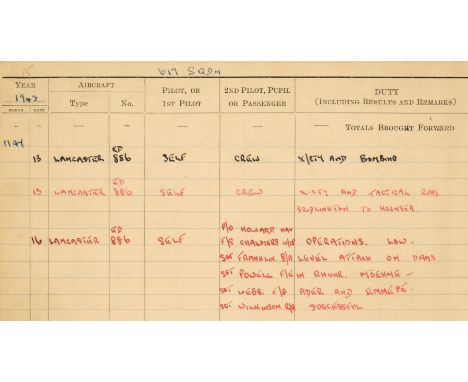 15
617 SQDN
YEAR AIRCRAFT PILOT, OR 2ND PILOT, PUPIL DUTY
1943 1ST PILOT OR PASSENGER (INCLUDING RESULTS AND REMARKS)
MONTH DATE Type No.
— — — — — — TOTALS BROUGHT FORWARD
MAY
13 LANCASTER ED 886 SELF CREW X/CTY AND BOMBING
13 LANCASTER ED 886 SELF CREW X-CTY AND TACTICAL RUNS
BRIDLINGTON TO HORNSEA
16 LANCASTER ED 886 SELF P/O HOWARD NAV
F/S CHALMERS W/OP OPERATIONS. LOW-
SGT FRANKLIN B/A LEVEL ATTACK ON DAMS
SGT POWELL F/E IN RHUR. MOEHNE-
SGT WEBB F/G ADER AND ENNEPE.
SGT WILKINSON R/G SUCCESSFUL